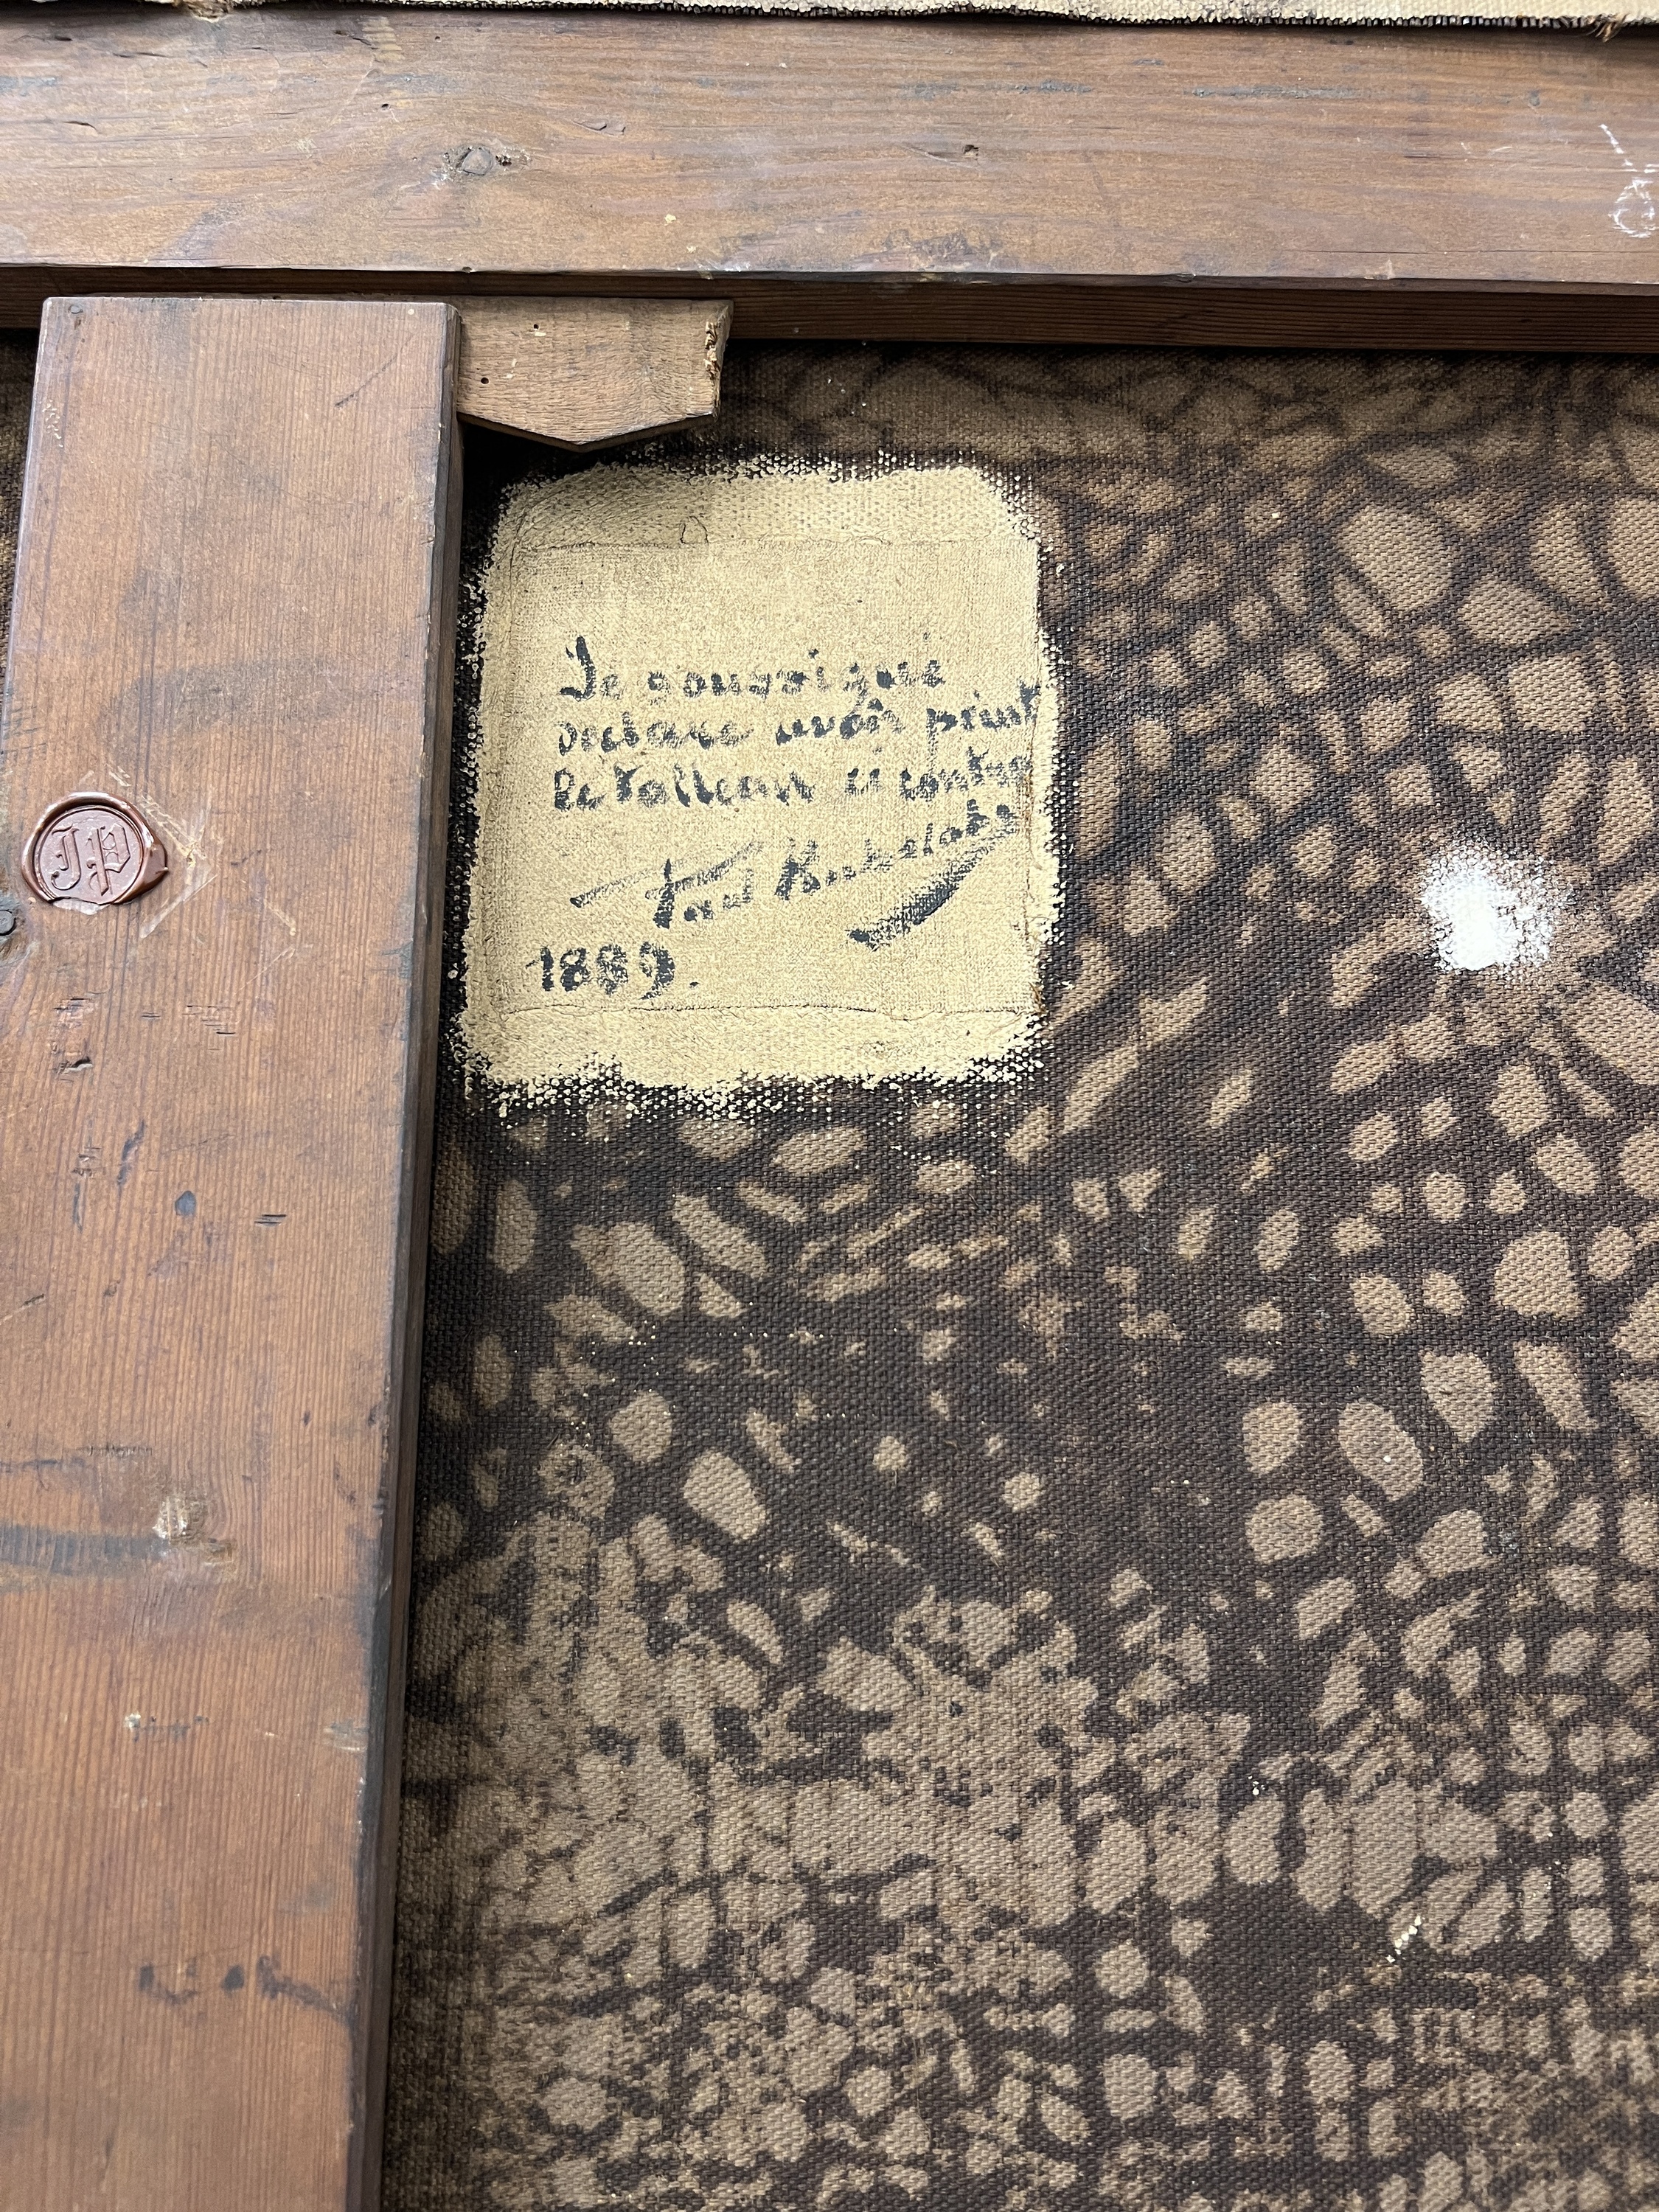 JP
Je soussigné
déclare avoir peint
le tableau ci contre
Paul
1889.